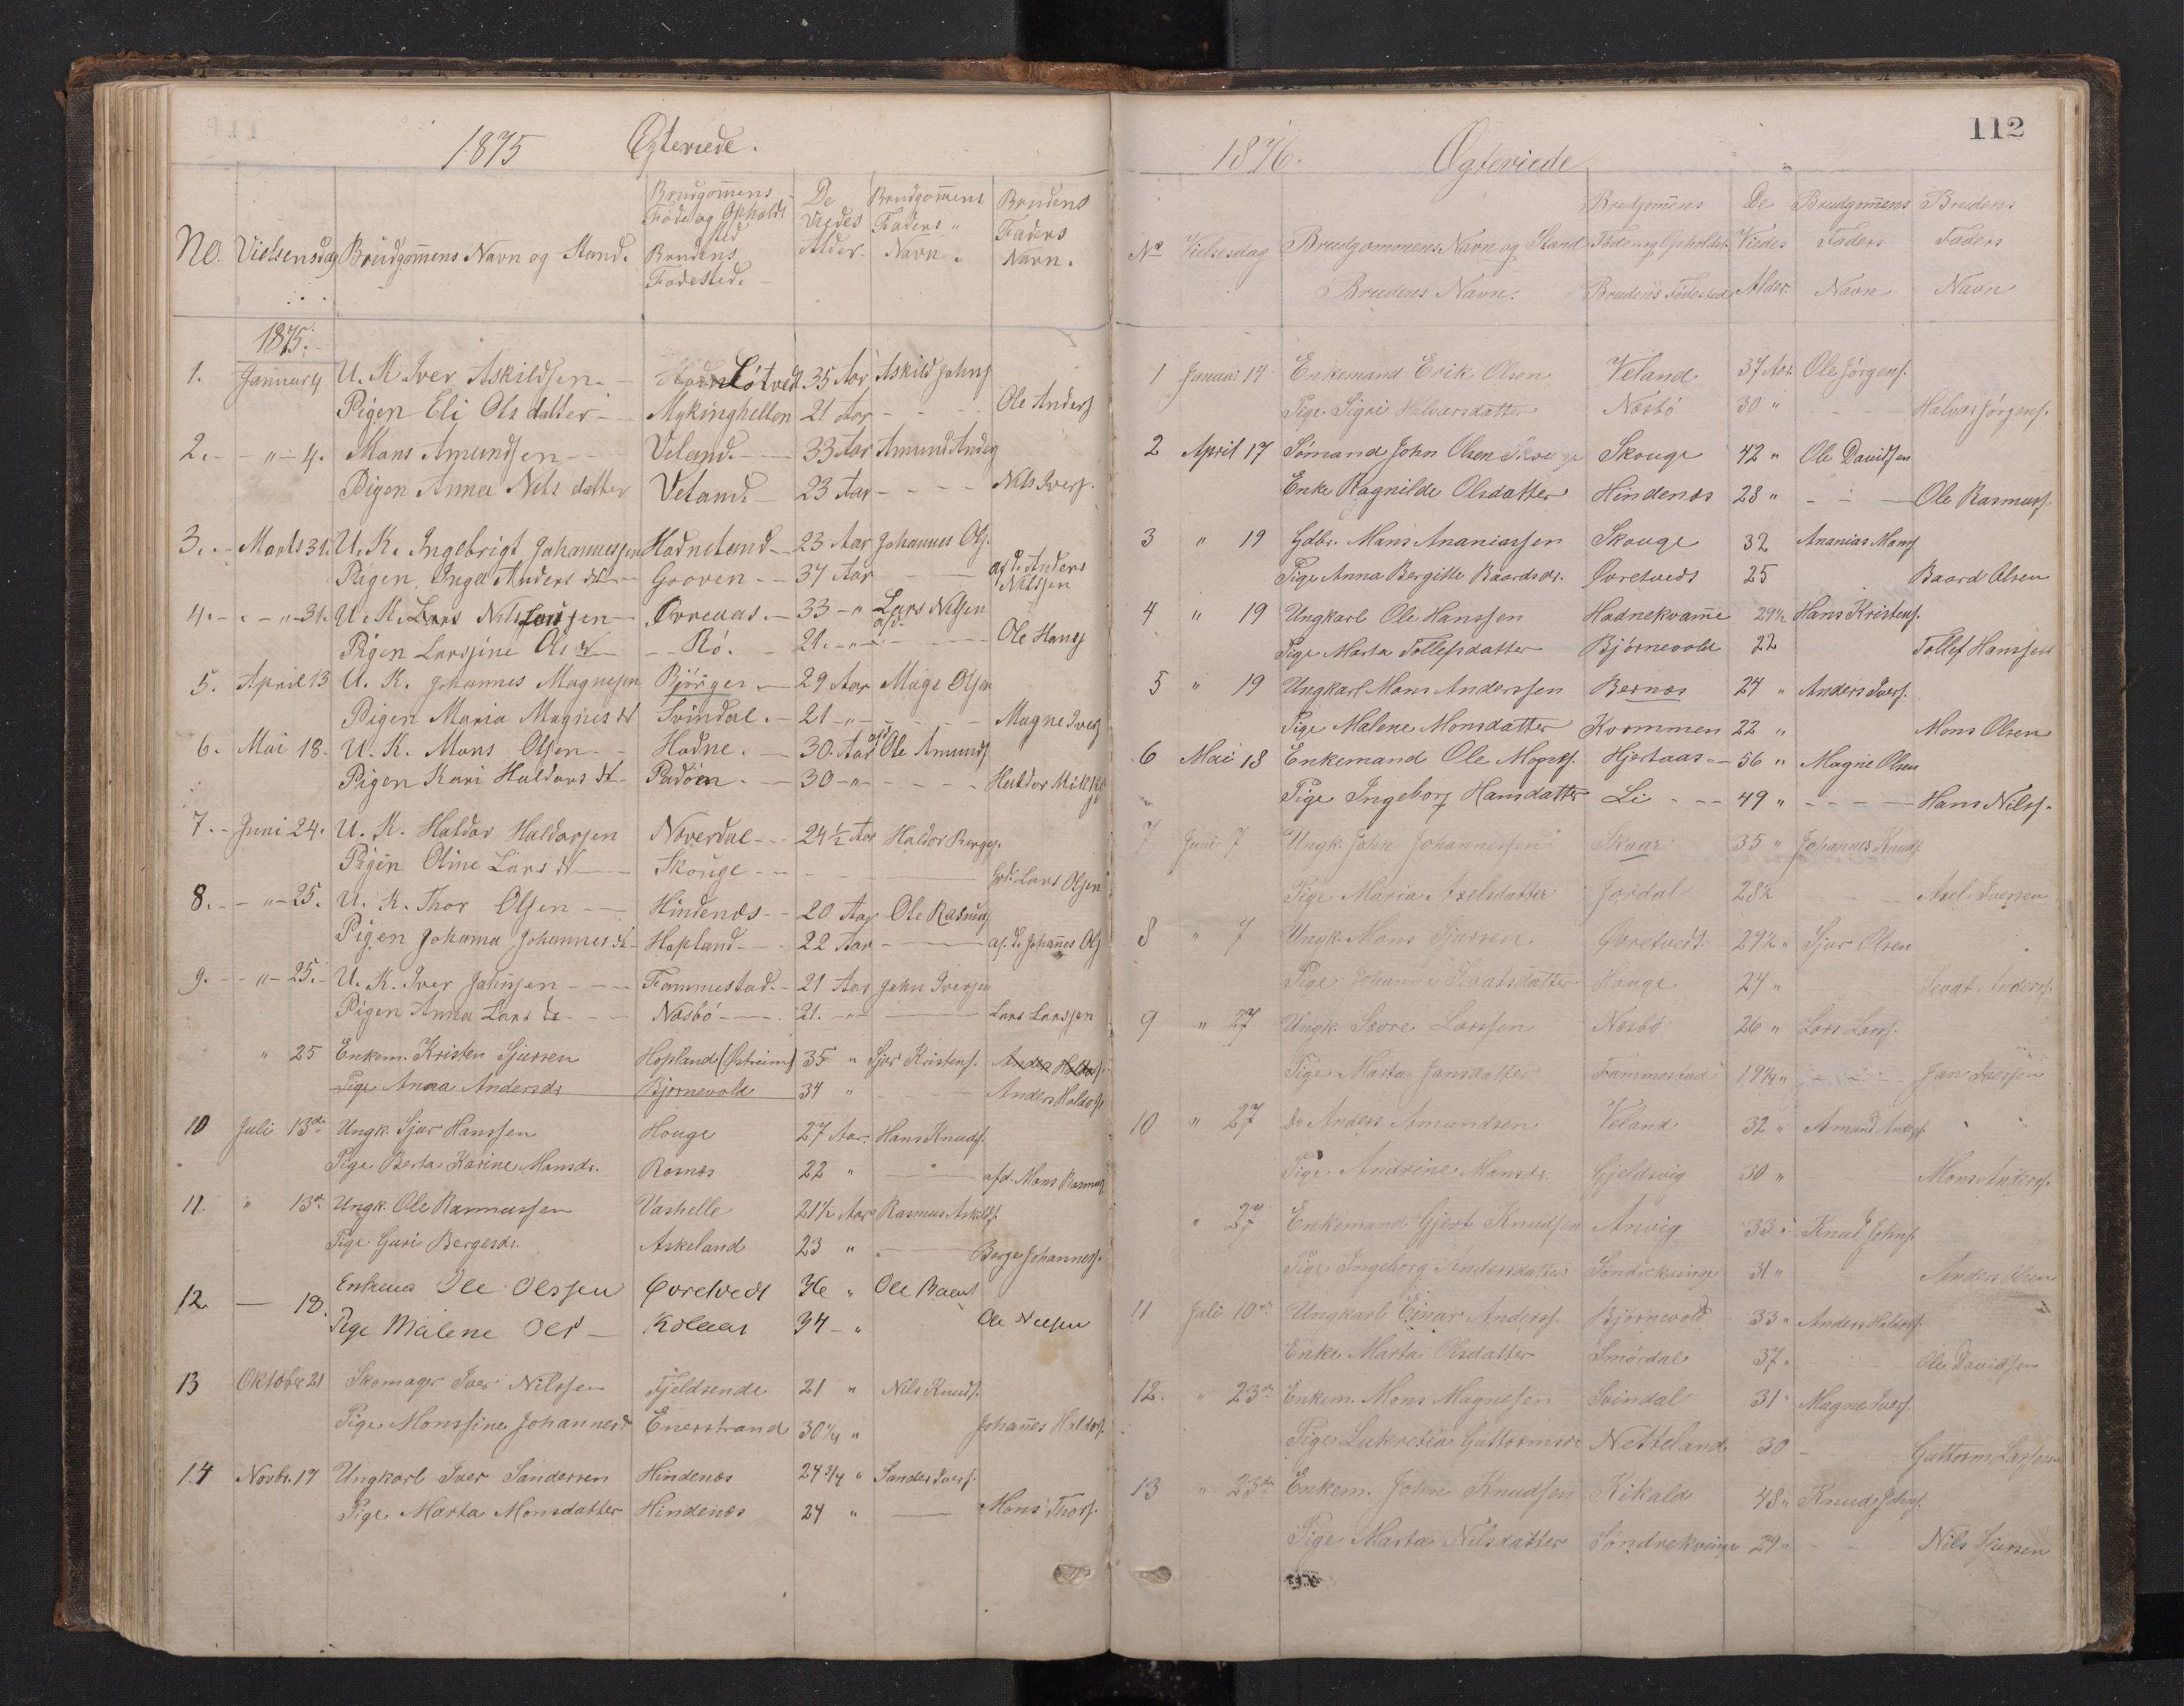 1875 Egteviede.
No. Vielsensdag Brudgom̄ens Navn og Stand. Brudgom̄ens Føde og Opholdssted Brudens Fødested. De Viedes Alder. Brudgom̄ens Faders Navn. Brudens Faders Navn.
1875.
1. Januar 4 U. K. Iver Askildsen Løtved 35 Aar Askild Johns
Pigen Eli Ols datter Mykinghellen 21 Aar Ole Anders
2. " 4. Mons Amundsen Veland 33 Aar Amund Anders
Pigen Anna Nils datter Veland 23 Aar Nils Ivers.
3. Marts 31. U. K. Ingebrigt Johannessen Hadneland 23 Aar Johannes Ols.
Pigen Inga Anders dt Grøven 34 Aar afd. Anders Nilssen
4. " 31. U. K. Lars Larssen Øvreaas 33 " Lars Nilsen
Pigen Larsjine Ols dt Rø. 21 " afd. Ole Hans
5. April 13 U. K. Johannes Magnesen Bjørger 29 Aar Magne Olsen
Pigen Maria Magnes dt Svindal 21 " Magne Ivers
6. Mai 18. U. K. Mons Olsen Hodne. 30 Aar afd. Ole Amunds
Pigen Kari Haldors dt Radøen 30 " Haldor Mikkels
7. Juni 24. U. K. Haldor Haldorsen Noverdal 24 ½ Aar Haldor Berges.
Pigen Oline Lars dt Skouge Lars Olsen
8. " 25. U. K. Thor Olsen Hindenes 20 Aar Ole Rasmus
Pigen Johanna Johannes dt Hopland 22 Aar af. d. Johan̄es Ols
9. " 25. U. K. Iver Johnsen Fammestad 21 Aar John Iversen
Pigen Anna Lars dt Nasbø 21. " Lars Larssen
" 25 Enkem. Kristen Sjursen Hopland (Østreim) 35 " Sjur Kristens. Anders Haldors.
Pige Anna Andersdr Bjørnevold 34 " Anders Haldors.
10 Juli 13de Ungk. Sjur Hanssen Houge 27 Aar. Hans Knuds.
Pige Berta Karine Monsdr. Rosnes 22 " afd. Mons Rasmus.
11. " 13de Ungk. Ole Rasmussen Vashelle 21½ Aar Rasmus Askilds.
Pige Guri Bergesdr. Askeland 23 " Berge Johannes.
12. 18. Enkem Ole Olssen Øvretvedt 36 " Ole
Pige Malene Olsd Kolaas 34 " Ole Nilsen
13 Oktober 21 Skomager Iver Nilssen Fjeldsende 21 " Nils Knuds.
Pige Monssine Johannesdr Enerstrand 30¼ " Johan̄es Haldors.
14 Novbr. 17 Ungkarl Iver Sandersen Hindenes 24¾ " Sander Ivers.
Pige Marta Monsdatter Hindenes 24 " Mons Thors.
112
1876. Egteviede
No Vielsesdag Brudgommens Navn og Stand Brudens Navn. Brudgom̄ens Føde og Opholdst. Brudens Fødested De Viedes Alder. Brudgom̄ens Faders Navn Brudens Faders Navn
1 Januar 14 Enkemand Erik Olsen Veland 37 Aar Ole Jørgens.
Pige Sigri Halvorsdatter Nasbø 30 " Halvor Jørgens.
2 April 17 Sømand John Olsen Skouge Skouge 42 " Ole Davidsen
Enke Ragnilde Olsdatter Hindenes 28 " Ole Rasmuss.
3 " 19 Gdbr. Mons Ananiassen Skouge 32 Ananias Mons
Pige Anna Bergitte Baardsdr. Øvretvedt 25 Baard Olsen
4 " 19 Ungkarl Ole Hanssen Hodnekvam̄e 29½ Hans Kristens.
Pige Marta Tollefsdatter Bjørnevold 22 Tollef Hanssen
5 " 19 Ungkarl Mons Anderssen Bernes 24 " Anders Ivers.
Pige Malene Monsdatter Kvommen 22 " Mons Olsen
6 Mai 18 Enkemand Ole Magnes. Hjertaas 56 " Magne Olsen
Pige Ingeborg Hansdatter Li 49 " Hans Nilss.
7 Juni 7 Ungk. John Johannessen Skaar 35 " Johannes Knuds
Pige Maria Axelsdatter Jordal 28½ Axel Iversen
8 " 7 Ungk. Mons Sjursen Øvretvedt 29½ " Sjur Olsen
Pige Johanna Sevatsdatter Houge 24 " Sevat Anders.
9 " 27 Ungk. Sævre Larssen Nesbø 26 " Lars Larss.
Pige Marta Jansdatter Fammestad 19¼ " Jan Iversen
10 " 27 Do Anders Amundsen Veland 32 " Amund Anders.
Pige Andrine Monsdr. Gjeldsvig 30 " Mons Anders.
" 27 Enkemand Gjert Knudsen Anvig 33 " Knud Johns.
Pige Ingeborg Andersdatter Søndrekvinge 31 " Anders Olsen
11 Juli 10de Ungkarl Einar Anderss. Bjørnevold 33 " Anders Haldors.
Enke Marta Olsdatter Smørdal 37 " Ole Davidsen
12. " 23de Enkem. Mons Magnesen Svindal 31 " Magne Ivers.
Pige Lukretia Guttormsdr Netteland 30 Guttorm Larssen
13 " 23de Enkem. John Knudsen Kikald 48 " Knud Johns.
Pige Marta Nilsdatter Søndrekvinge 29 " Nils Sjursen